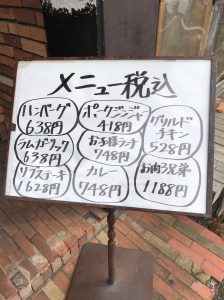 メニュー税込
ハンバーグ
638円
ポークジンジャー
418円
グリルド
チキン
528円
ラムガーリック
638円
お子様ランチ
748円
リブステーキ
1628円
カレー
748円
お肉3兄弟
1188円